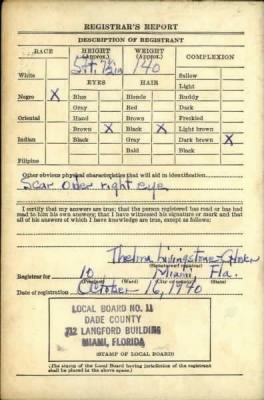 REGISTRAR'S REPORT
DESCRIPTION OF REGISTRANT
RACE HEIGHT (Approx.) WEIGHT (Approx.) COMPLEXION
5ft. 140
White Sallow
EYES HAIR Light
Negro X Blue Blonde Ruddy
Gray Red Dark
Oriental Hazel Brown Freckled
Brown X Black X Light brown
Indian Black Gray Dark brown X
Bald Black
Filipino
Other obvious physical characteristics that will aid in identification
Scar over right eye
I certify that my answers are true; that the person registered has read or has had
read to him his own answers; that I have witnessed his signature or mark and that
all of his answers of which I have knowledge are true, except as follows:
Thelma Livingstone
(Signature of registrar)
Registrar for 10 Miami, Fla.
(Precinct) (Ward) (City or county) (State)
Date of registration October 16, 1940
LOCAL BOARD NO. 11
DADE COUNTY
712 LANGFORD BUILDING
MIAMI, FLORIDA
(STAMP OF LOCAL BOARD)
(The stamp of the Local Board having jurisdiction of the registrant
shall be placed in the above space.)